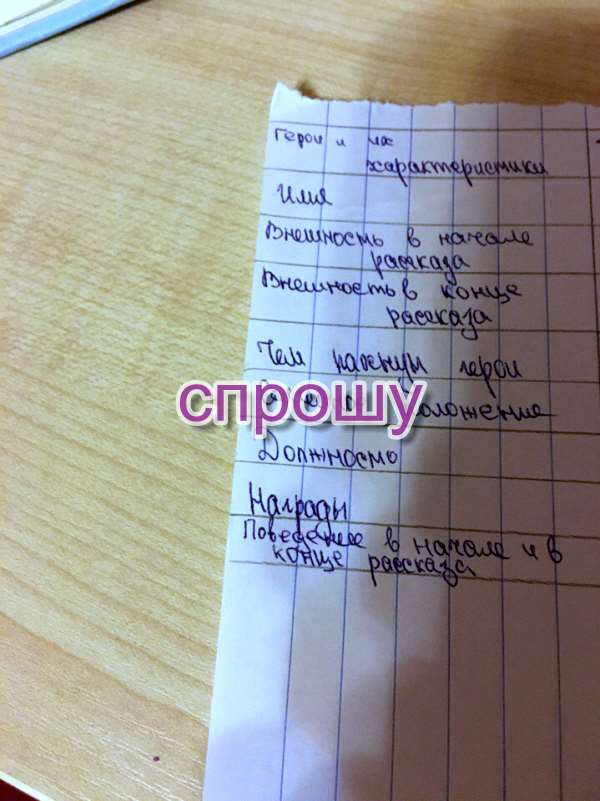 Герои и их
характеристики
Имя
Внешность в начале
рассказа
Внешность в конце
рассказа
Чем пахнул герои
спрошу
положение
Должность
Награды
Поведение в начале и в
конце рассказа